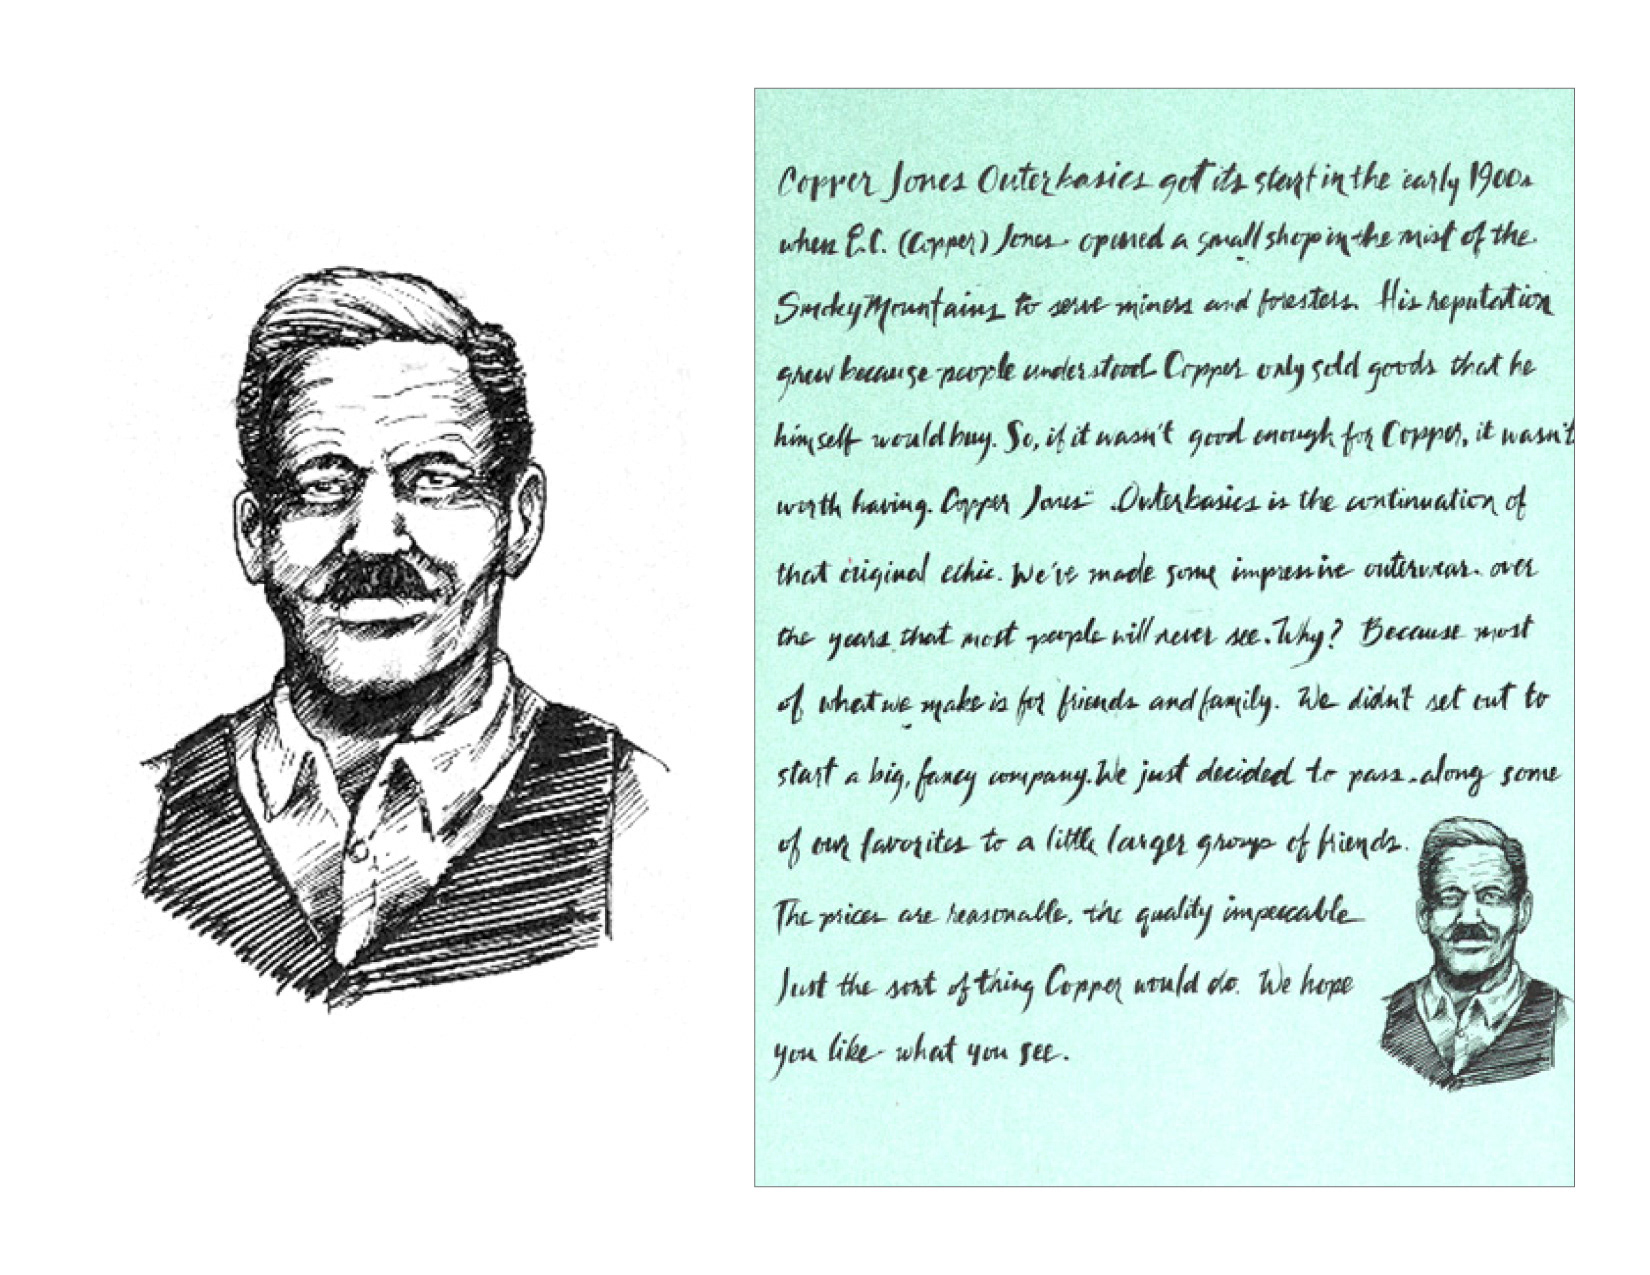 Copper Jones Outerbasics got its start in the early 1900s
when E.C. (Copper) Jones opened a small shop in the mist of the
Smoky Mountains to serve miners and foresters. His reputation
grew because people understood Copper only sold goods that he
himself would buy. So, if it wasn't good enough for Copper, it wasn't
worth having. Copper Jones Outerbasics is the continuation of
that original ethic. We've made some impressive outerwear over
the years that most people will never see. Why? Because most
of what we make is for friends and family. We didn't set out to
start a big, fancy company. We just decided to pass along some
of our favorites to a little larger group of friends.
The prices are reasonable, the quality impeccable
Just the sort of thing Copper would do. We hope
you like what you see.